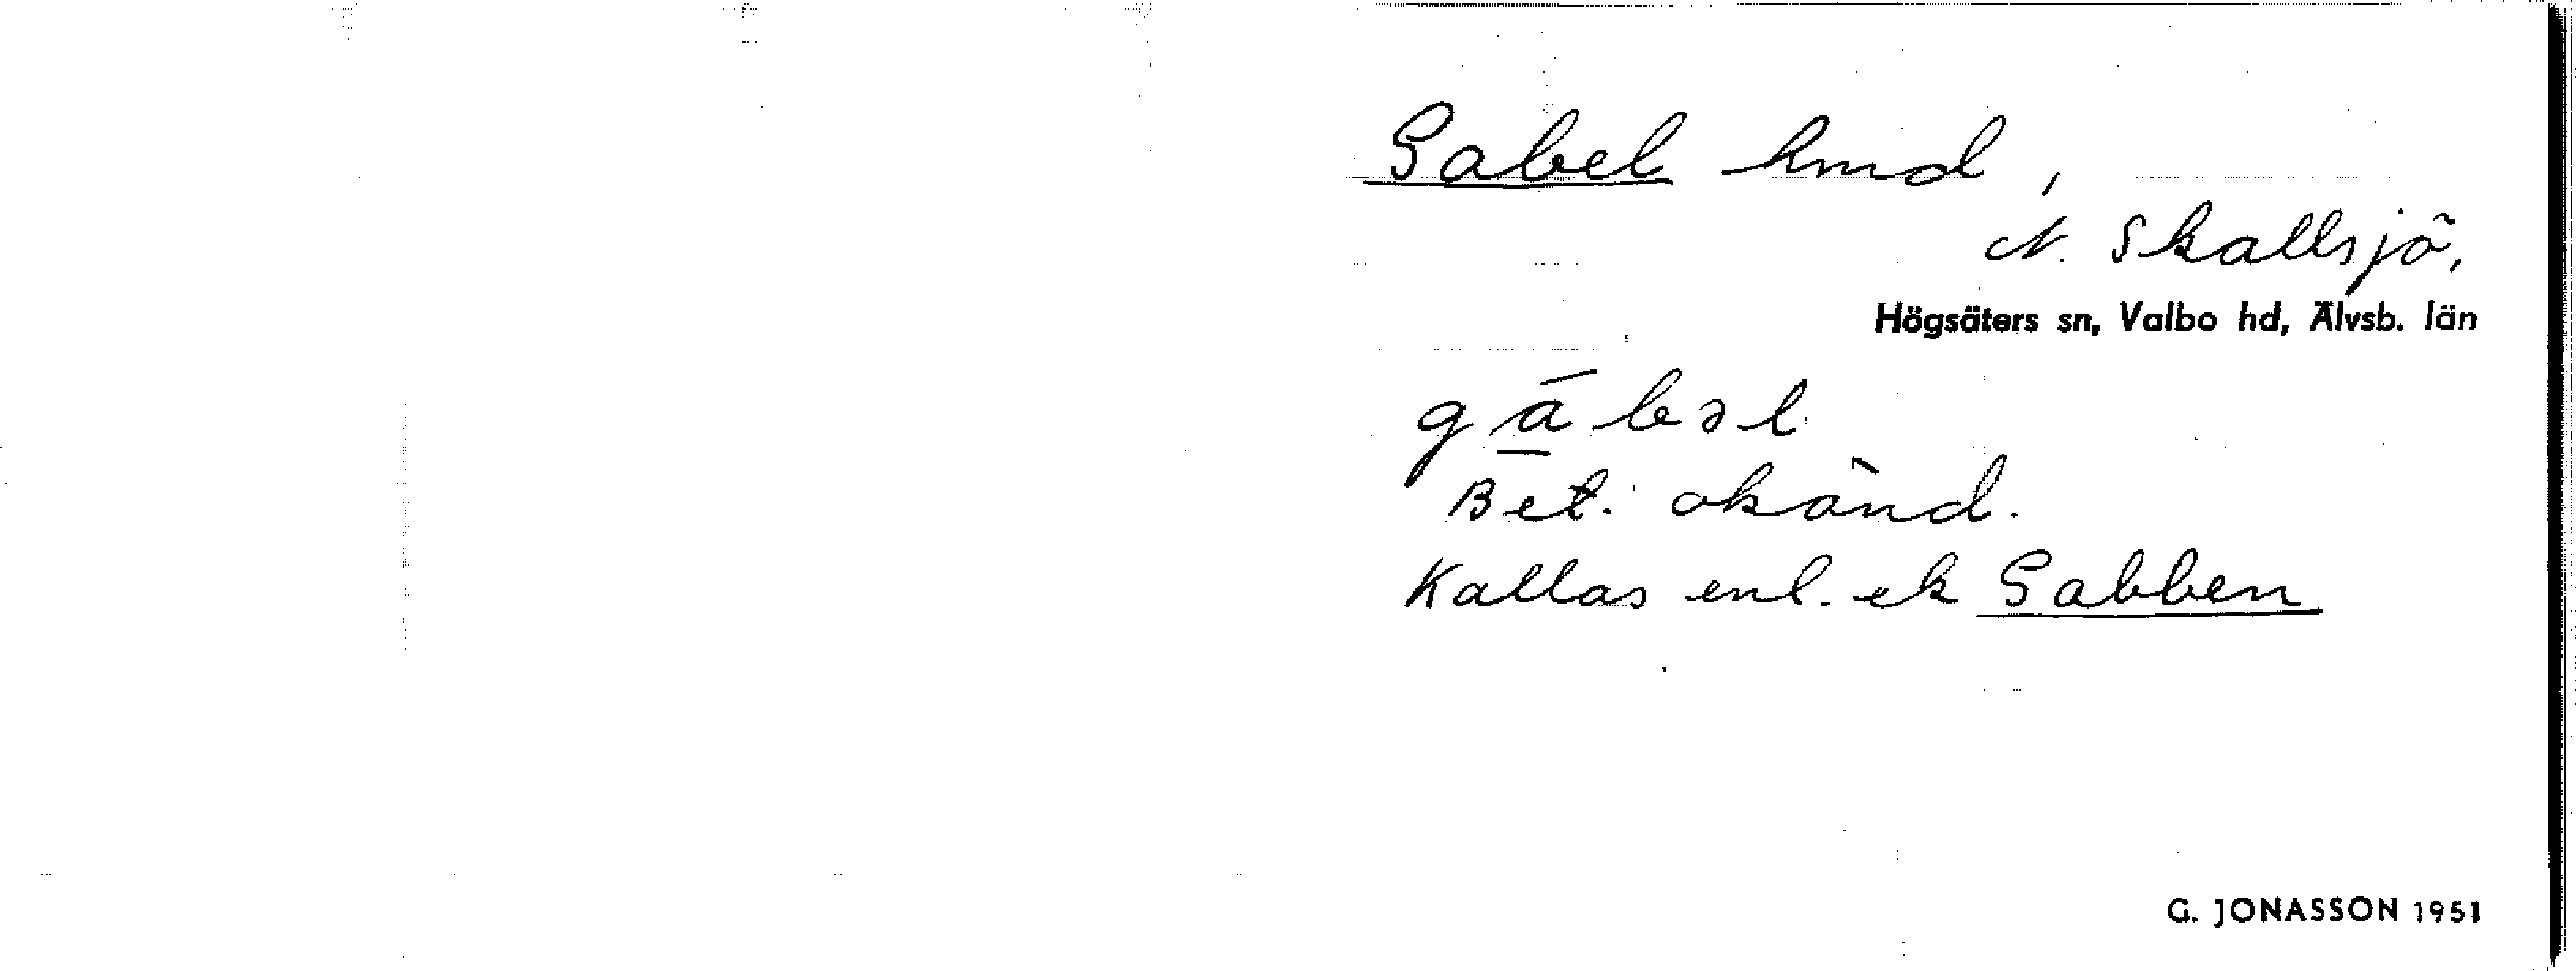 Gabel hmd,
N. Skallsjö,
Högsäters sn, Valbo hd, Älvsb. län
gābəl
Bet. okänd.
Kallas enl. ek Gabben
G. JONASSON 1951